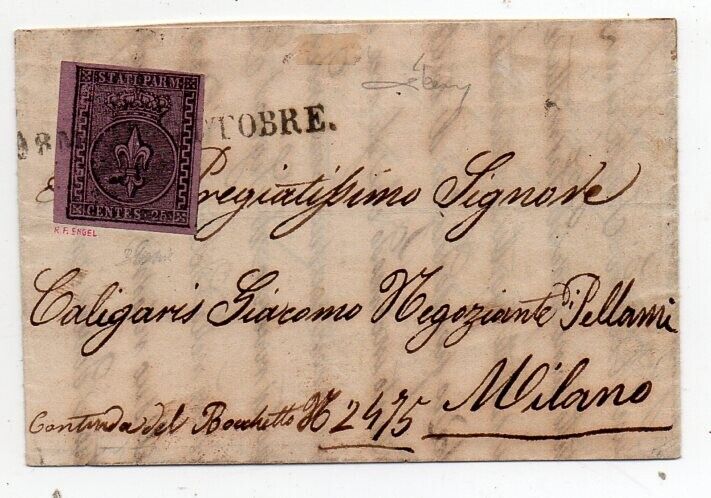 STATI PARM.
CENTES. 25
TOBRE.
R. F. ENGEL
Pregiatissimo Signore
Caligaris Giacomo Negoziante di Pellami
Milano
Contrada del Bocchetto N 2475